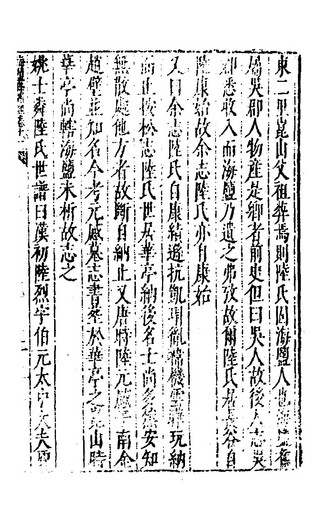 東二里崑山父祖葬焉則陸氏固海鹽人也
屬吳郡人物產是鄉者前史但曰吳人故後人志吳
郡悉收入而海鹽乃遺之弗攷故爾陸氏居華谷自
陸康始故余志陸氏亦自康始
又曰余志陸氏自康績遜抗凱瑁胤喜機雲曄玩納
而止按松志陸氏世居華亭納後名士尚多然安知
無散處他方者故斷自納止又唐時陸元感 南金
趙璧並知名今考元感墓志書葬於華亭之崑山時
華亭尚轄海鹽未析故志之
姚士粦陸氏世譜曰漢初陸烈字伯元太中大夫賈